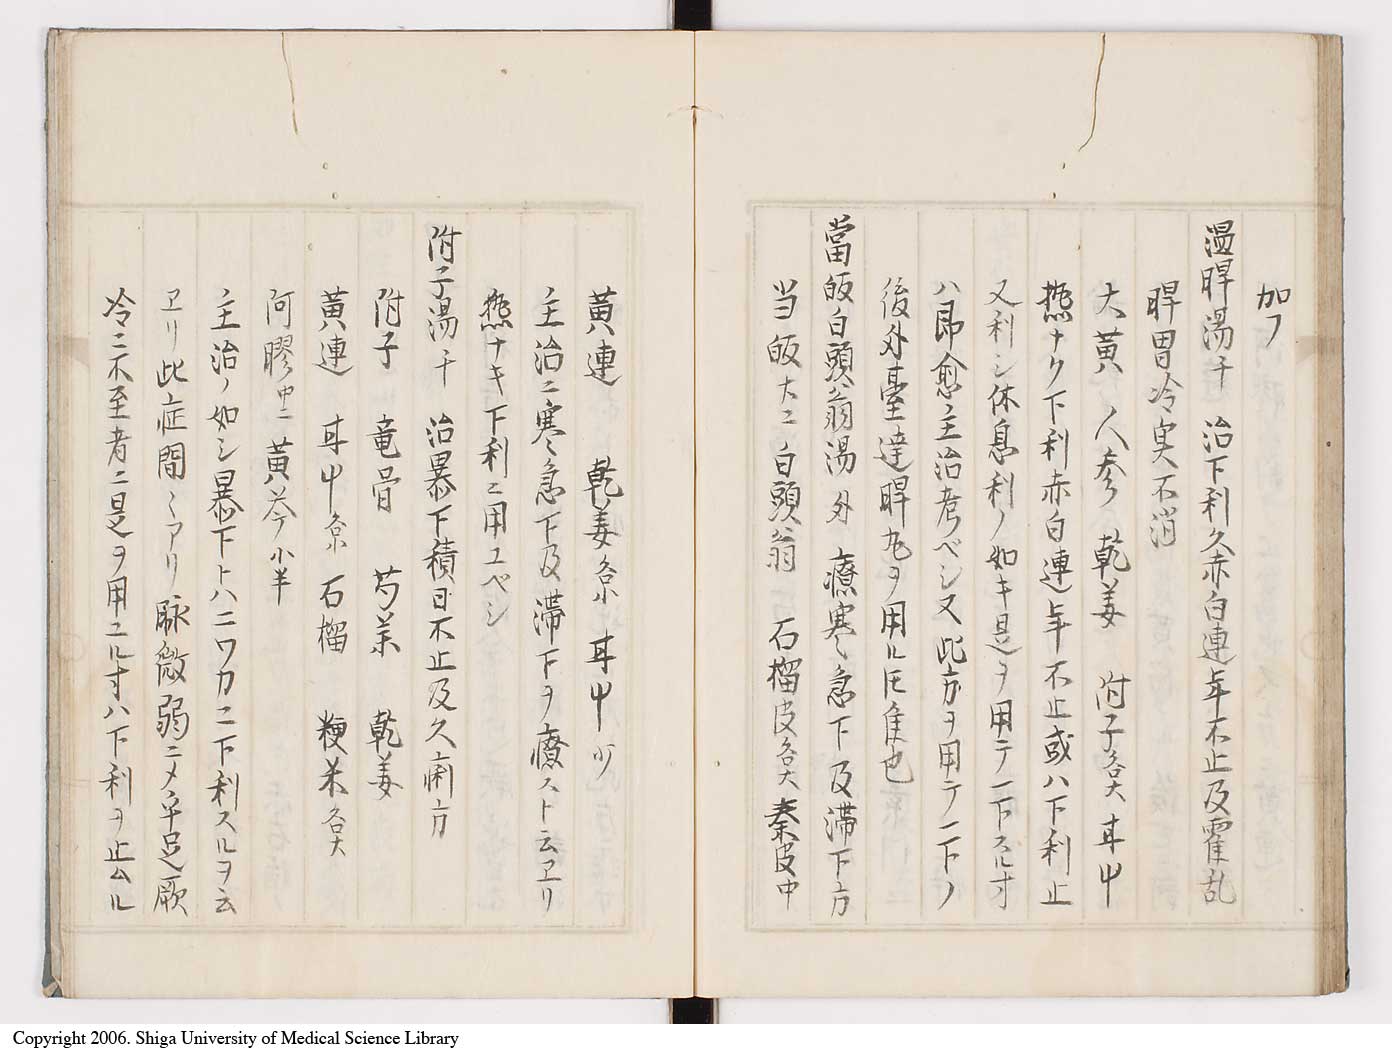 加フ
温脾湯千 治下利久赤白連年不止及霍乱
脾胃冷実不消
大黄 人参 乾姜 附子各大 甘艸
熱ナク下利赤白連年不止或ハ下利止
又利シ休息利ノ如キ是ヲ用テ一下スル寸
ハ即愈主治考ベシ又此方ヲ用テ一下ノ
後外臺達脾丸ヲ用ル圧隹也
當皈白頭翁湯外 療寒急下及滞下方
当皈大ニ 白頭翁 石榴皮各大 秦皮中
黄連 乾姜各小 甘艸少
主治ニ寒急下及滞下ヲ療スト云ヱリ
熱ナキ下利ニ用ユベシ
附子湯千 治暴下積日不止及久痢方
附子 竜骨 芍薬 乾姜
黄連 甘艸各小 石榴 粳米各大
阿膠中ニ 黄芩小半
主治ノ如シ暴下トハニワカニ下利スルヲ云
ヱリ此症間々アリ脉微弱ニメ手足厥
冷ニ不至者ニ是ヲ用ユル寸ハ下利ヲ止ムル
Copyright 2006. Shiga University of Medical Science Library